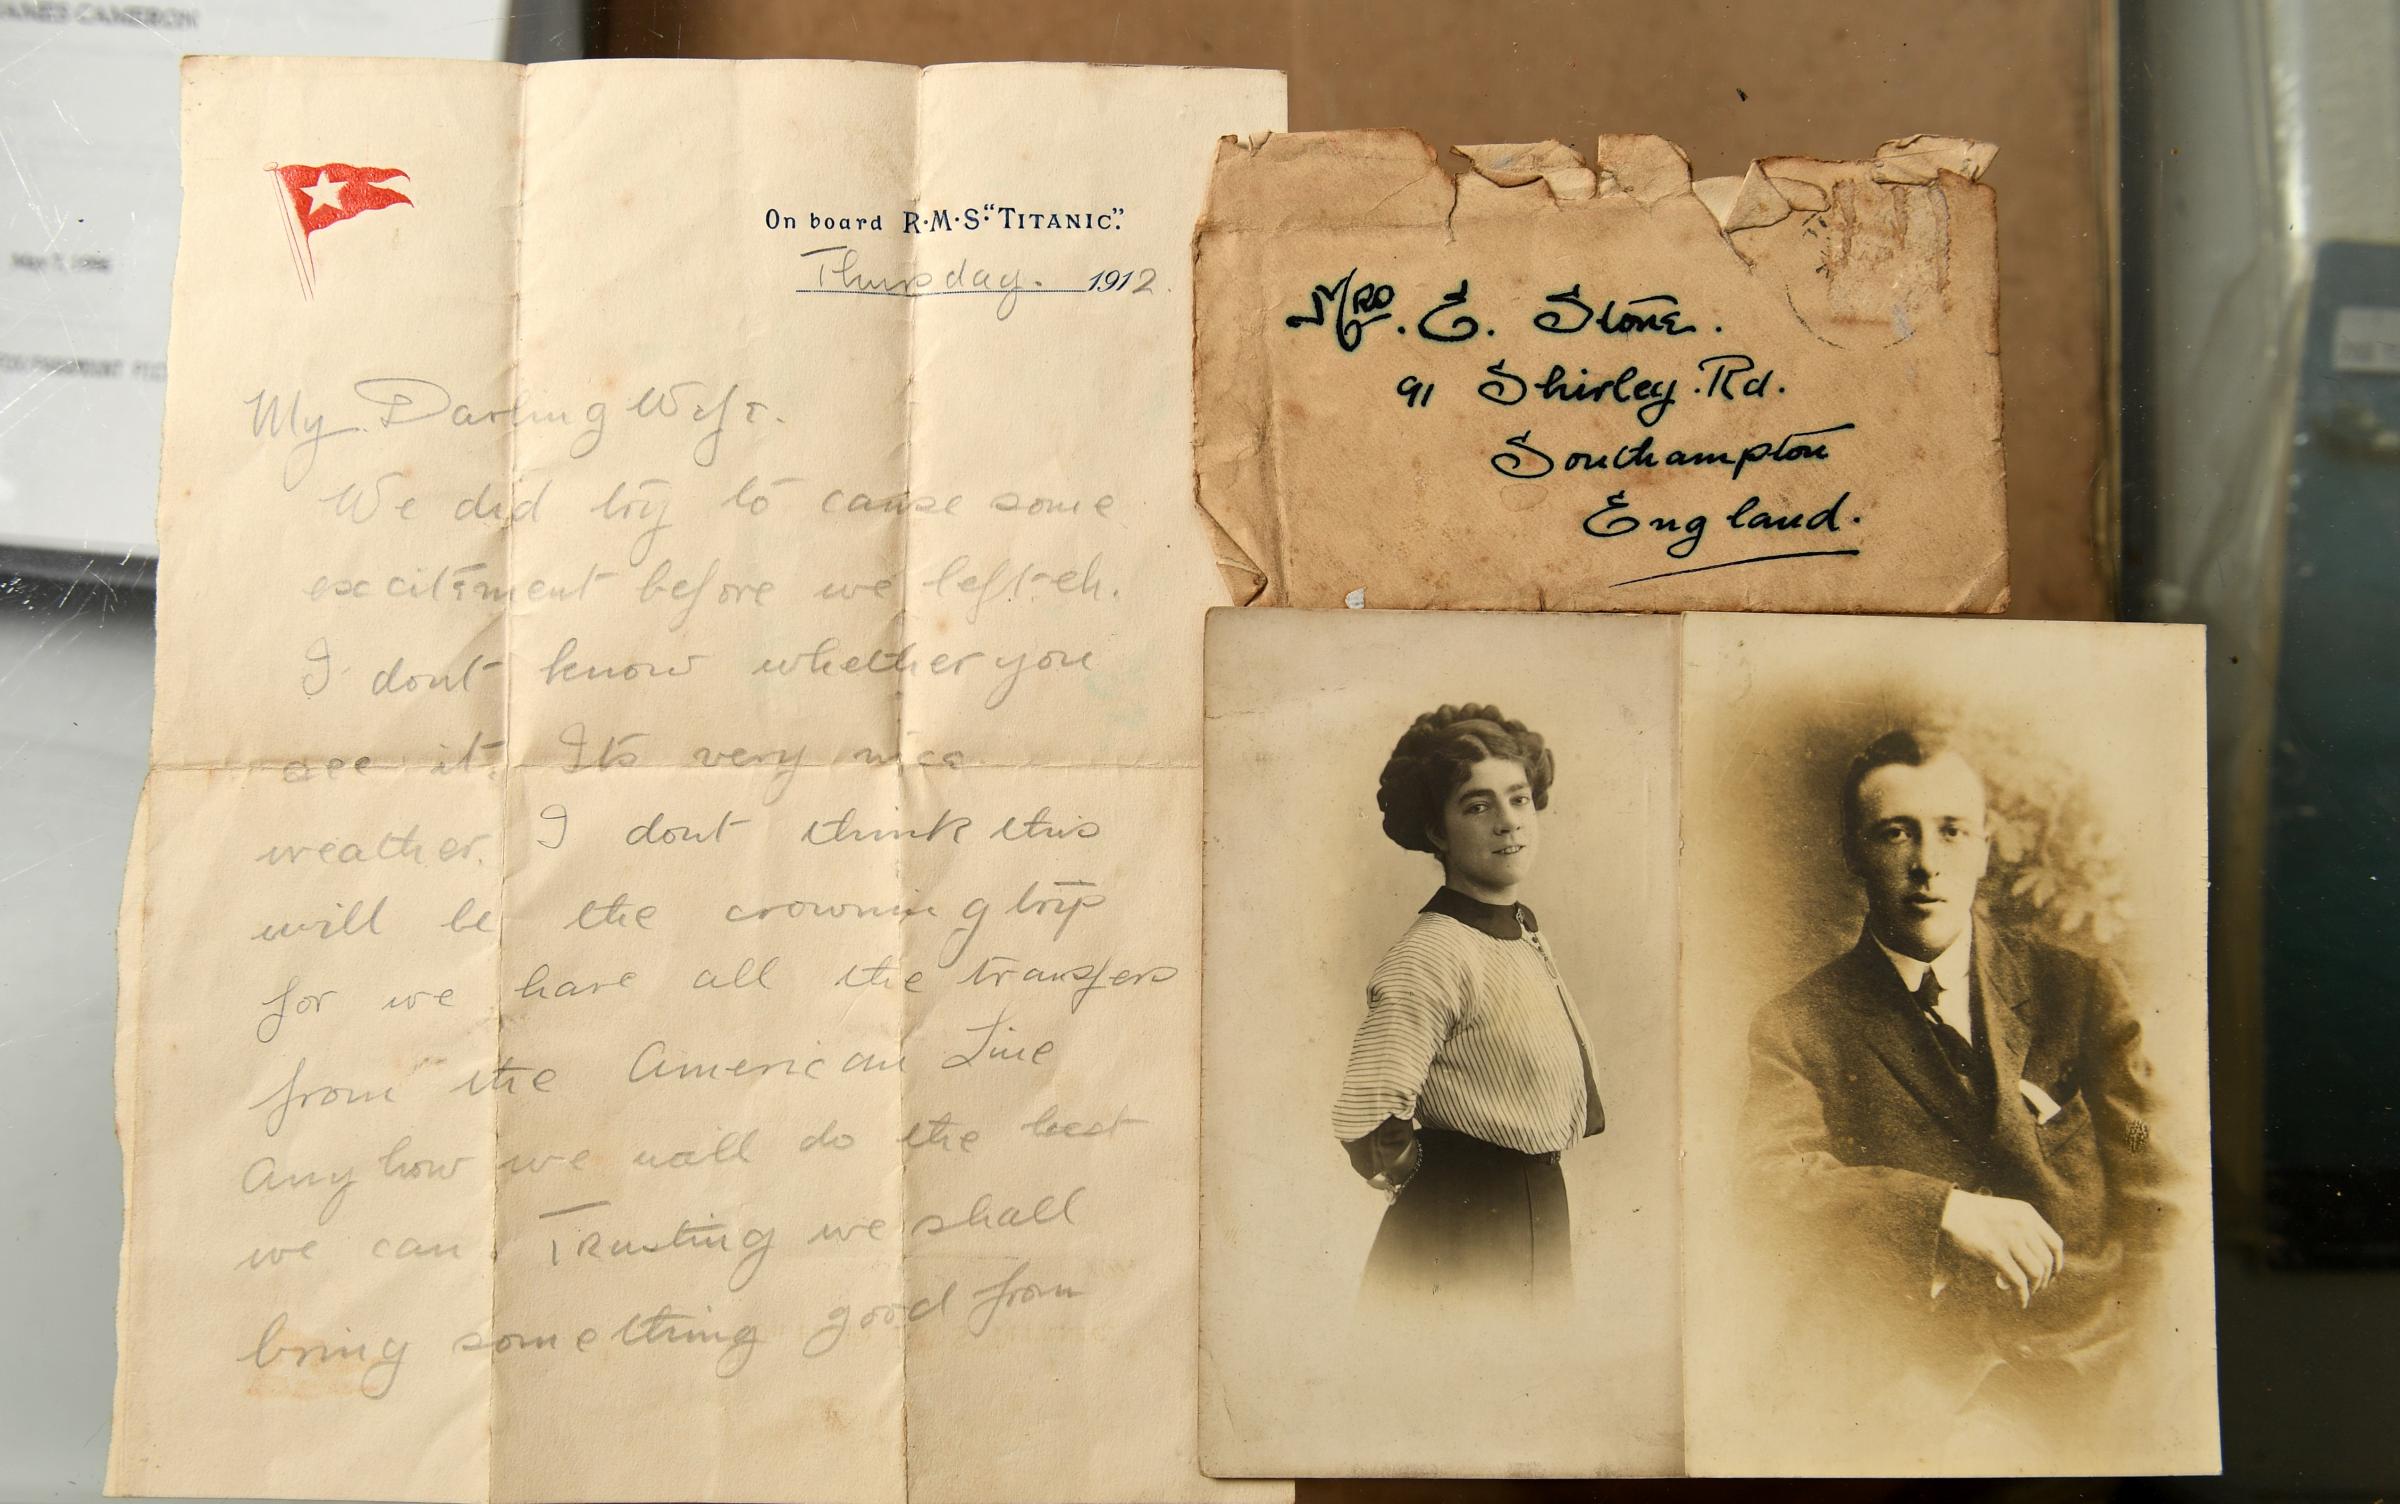 JAMES CAMERON
On board R·M·S·"TITANIC".
Thursday. 1912.
My Darling Wife.
We did try to cause some
excitement before we left eh.
I dont know whether you
see it. Its very nice
weather. I dont think this
will be the crowning trip
for we have all the transfers
from the American Line
Anyhow we will do the best
we can. Trusting we shall
bring something good from
Mrs. E. Stone.
91 Shirley Rd.
Southampton
England.